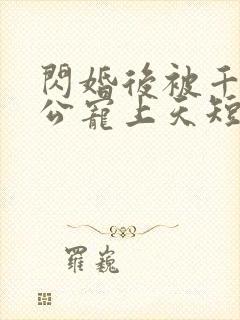 閃婚後被千
公寵上天短
羅巍